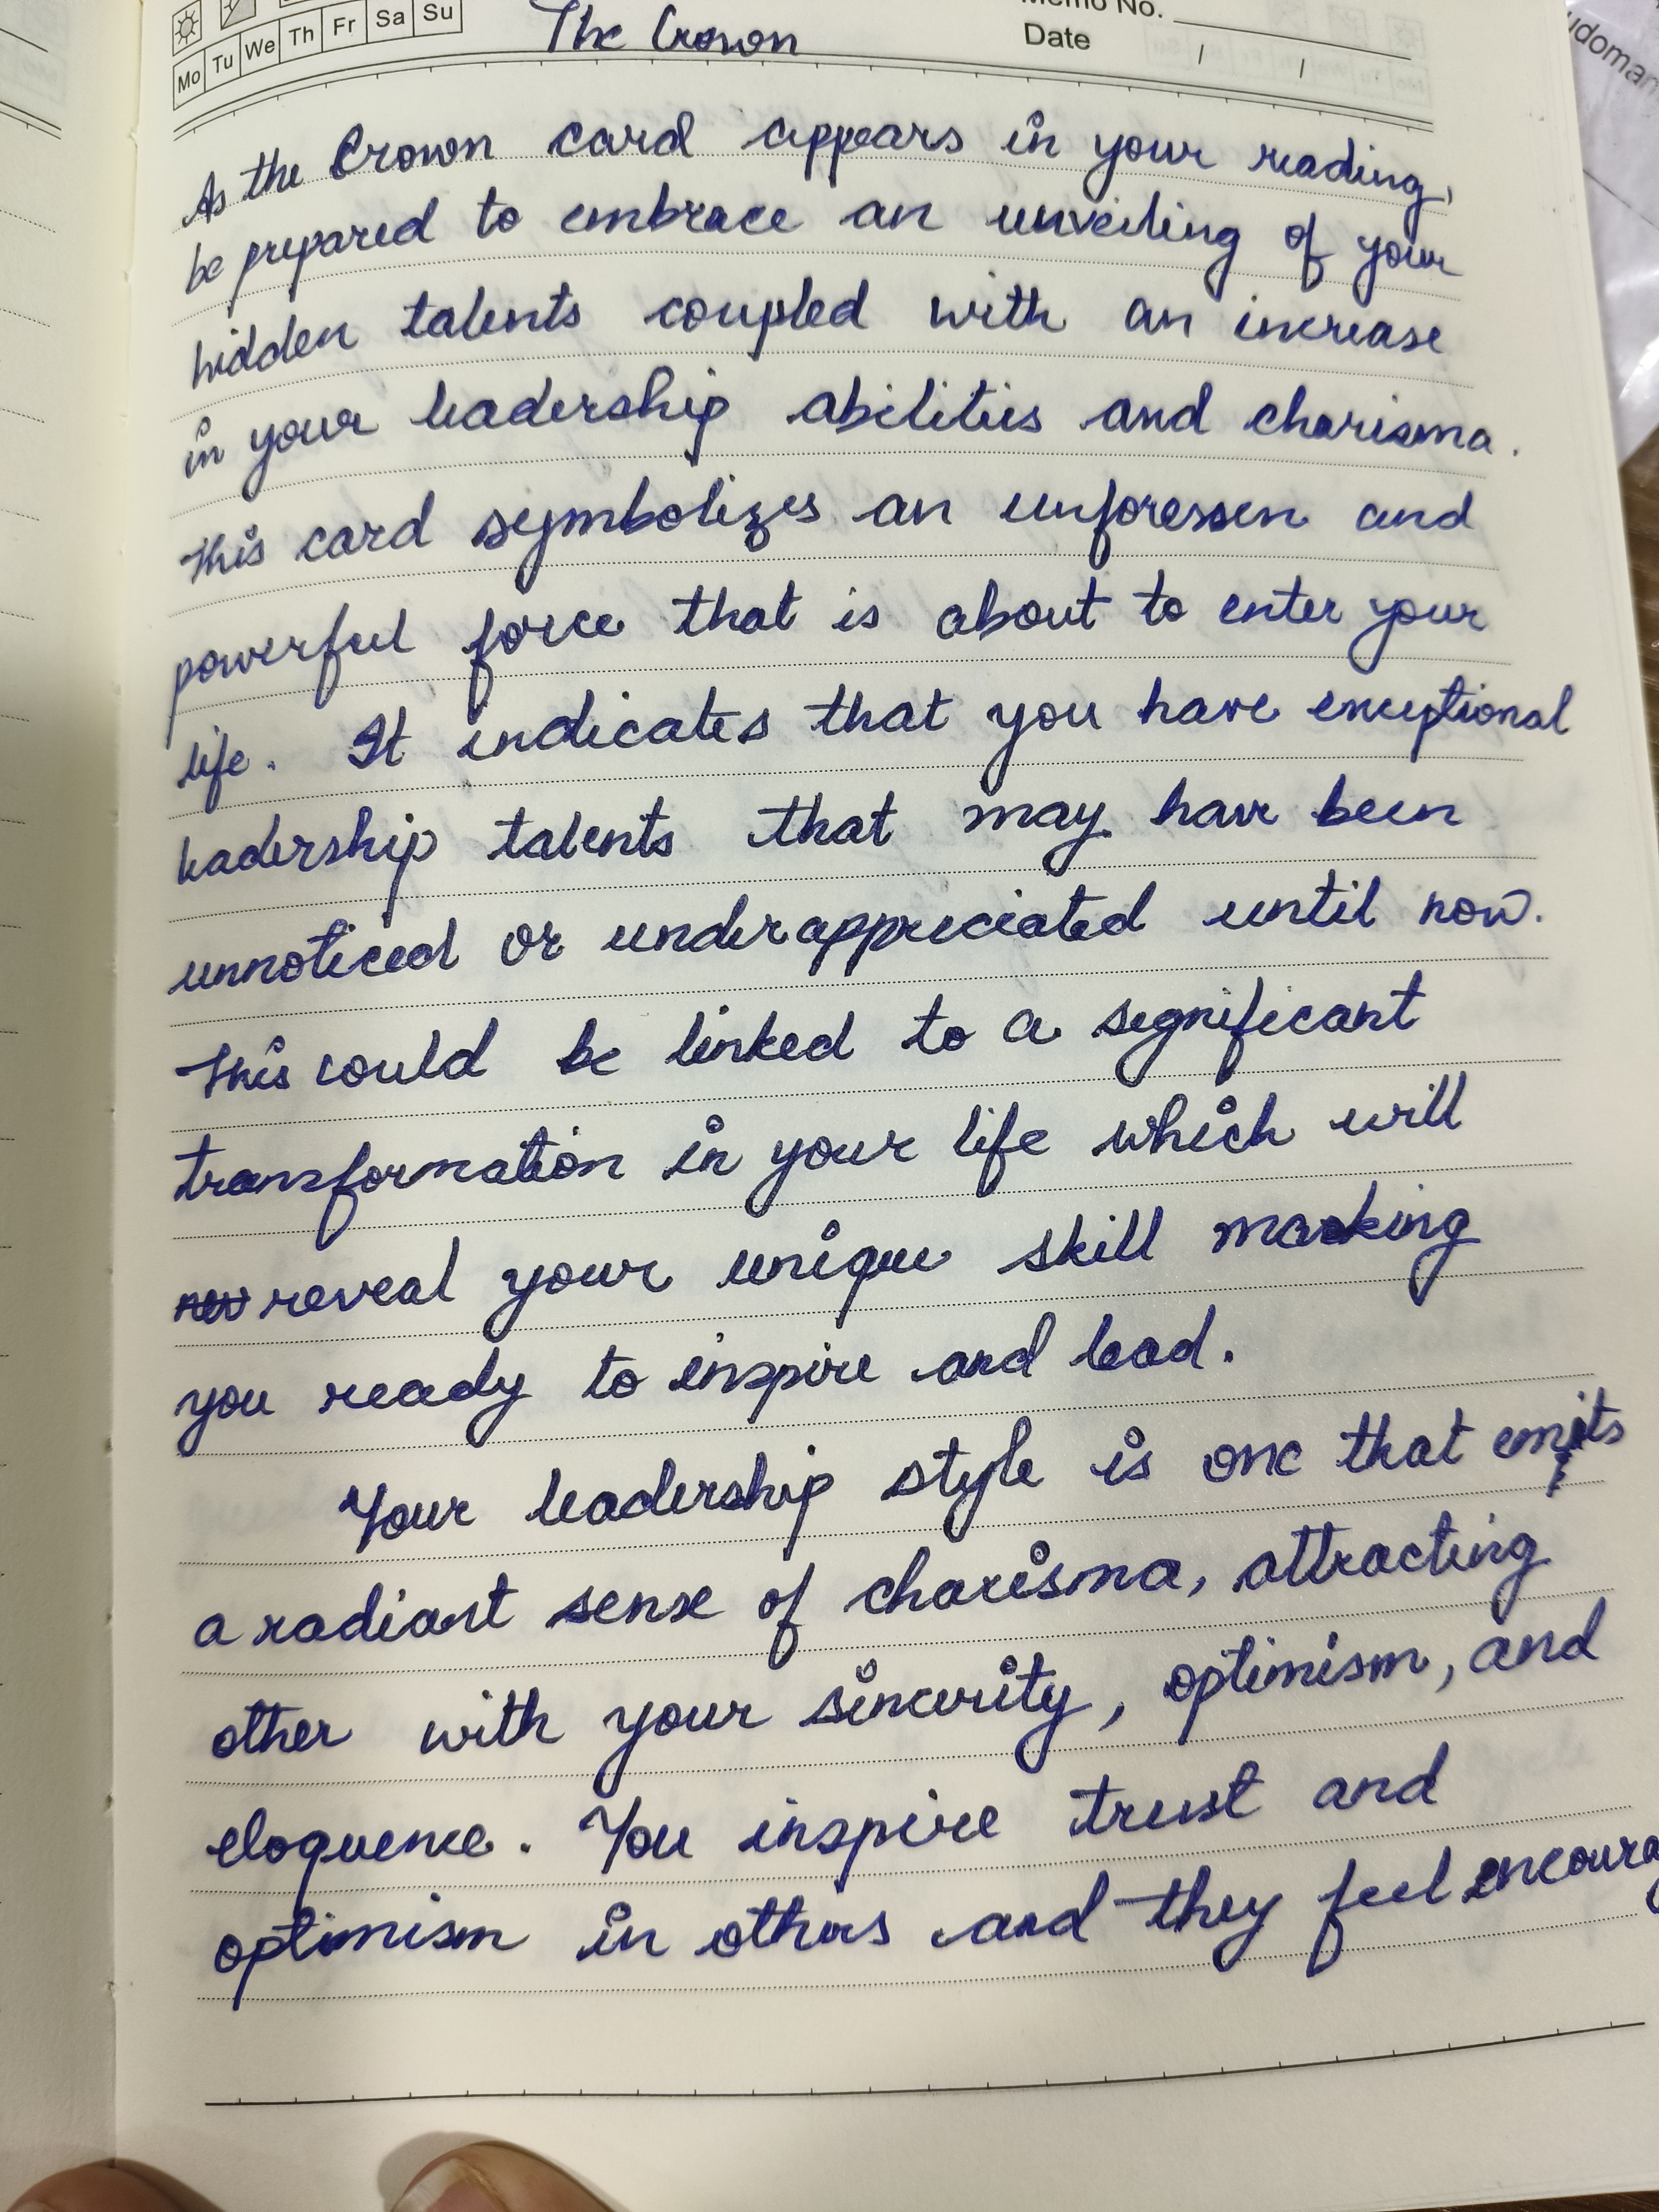 Mo Tu We Th Fr Sa Su
The Crown
Memo No.
Date / /
udoman
As the Crown card appears in your reading,
be prepared to embrace an unveiling of your
hidden talents coupled with an increase
in your leadership abilities and charisma.
This card symbolizes an unforessen and
powerful force that is about to enter your
life. It indicates that you have exceptional
leadership talents that may have been
unnoticed or underappreciated until now.
This could be linked to a significant
transformation in your life which will
reveal your unique skill marking
you ready to inspire and lead.
Your leadership style is one that emits
a radiant sense of charisma, attracting
other with your sincerity, optimism, and
eloquence. You inspire trust and
optimism in others and they feel encourag